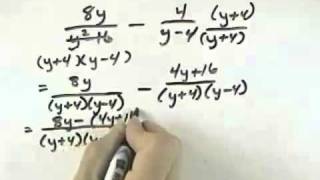 8y/(y²-16) - 4/(y-4) (y+4)/(y+4)
(y+4)(y-4)
= 8y/((y+4)(y-4)) - (4y+16)/((y+4)(y-4))
= 8y-(4y+1
(y+4)(y